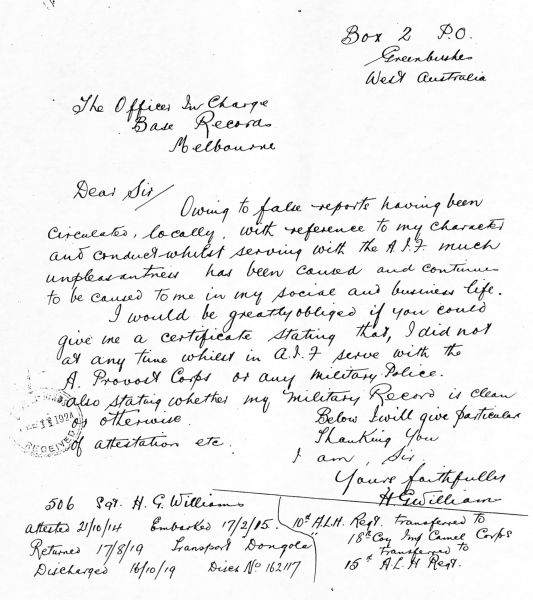 Box 2 P.O.
Greenbushes
West Australia
The Officer In Charge
Base Records
Melbourne
Dear Sir/
Owing to false reports having been
circulated, locally, with reference to my character
and conduct whilst serving with the A.I.F. much
unpleasantness has been caused and continues
to be caused to me in my social and business life.
I would be greatly obliged if you could
give me a certificate stating that, I did not
at any time whilst in A.I.F serve with the
A. Provost Corps or any Military Police.
also stating whether my Military Record is clean
or otherwise. Below I will give particulars
of attestation etc. Thanking You
I am, Sir,
Yours faithfully
H G William
RECEIVED
506 Sgt. H. G. Williams
attested 21/10/14 Embarked 17/2/15. 10th A.L.H. Regt. transferred to
18th Coy Imp Camel Corps
Returned 17/8/19 Transport "Dongola"
transferred to
Discharged 16/10/19 Disch No 162117 15th A.L.H Regt.